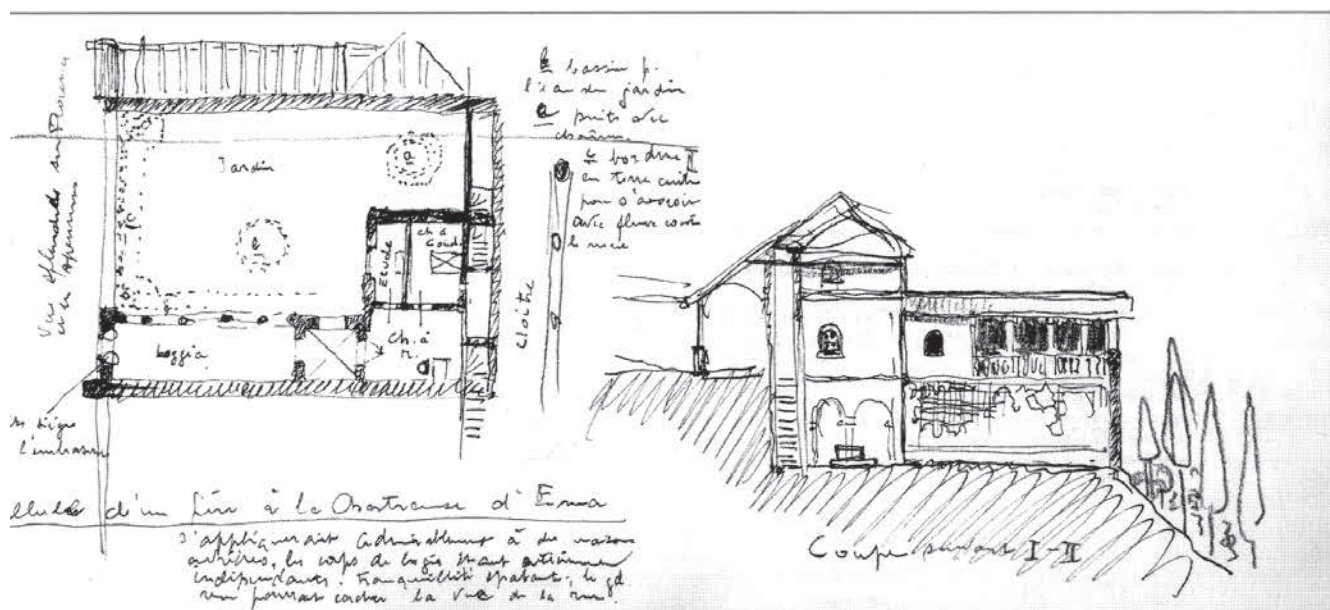 Vue splendide sur Florence
et les Apennins
Jardin
a
b
c
Etude
ch. à
Coucher
Ch. à
M.
Loggia
Cloître
b bassin p.
l'eau du jardin
a puits avec
c bordure
en terre cuite
pour s'asseoir
avec fleurs contre
le mur
II
siège
l'embrasure
d'un frère à la Chartreuse d'Ema
S'appliquerait admirablement à des maisons
ouvrières, les corps de logis étant entièrement
indépendants. Tranquillité épatante, le gd
mur pourrait cacher la vue de la rue.
Coupe suivant I-II